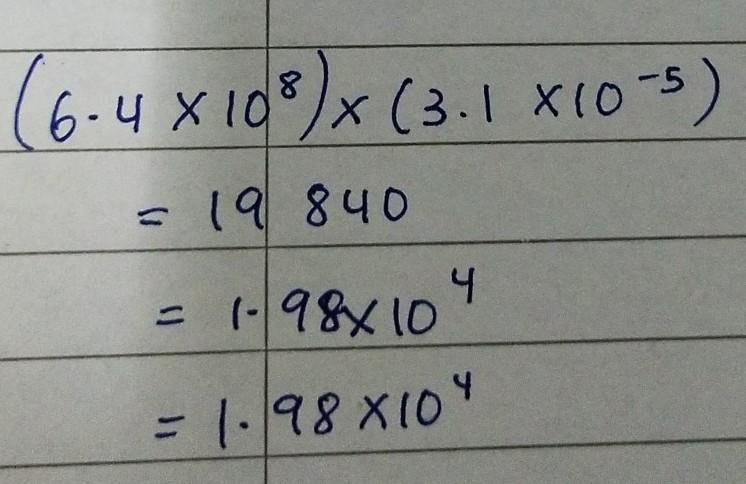 (6.4 × 10⁸) × (3.1 × 10⁻⁵)
= 19 840
= 1.98 × 10⁴
= 1.98 × 10⁴